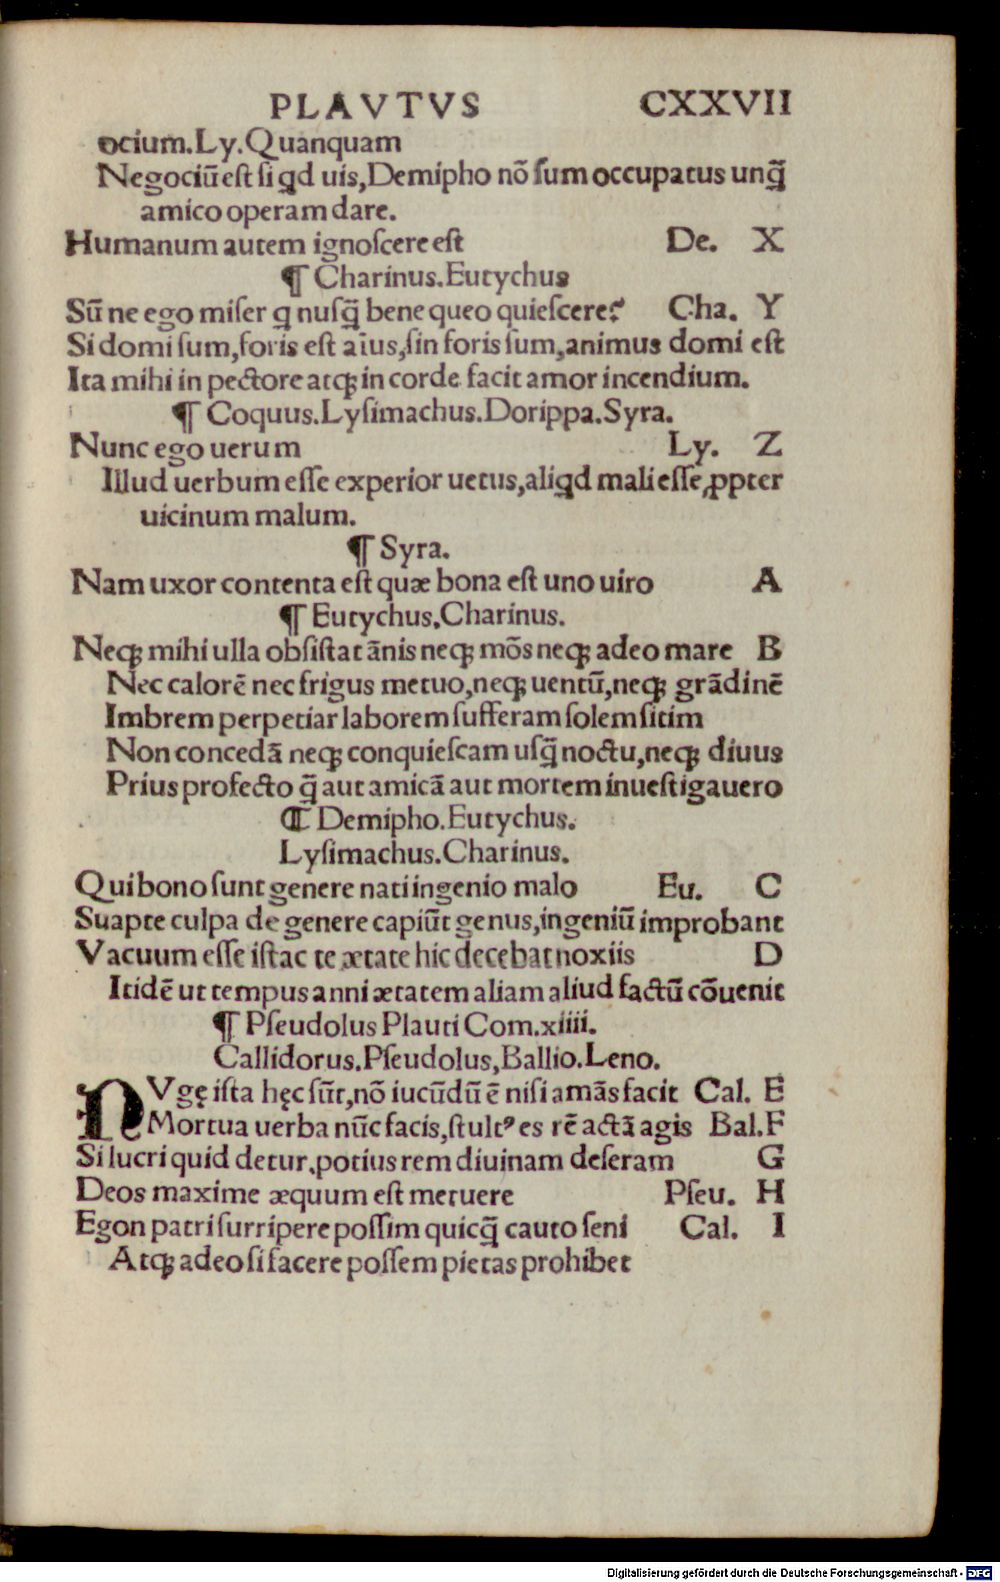 PLAVTVS CXXVII
ocium.Ly.Quanquam
Negociū est si qd uis,Demipho nō sum occupatus unq̄
amico operam dare.
Humanum autem ignoscere est De. X
¶ Charinus.Eutychus
Sū ne ego miser q nusq̄ bene queo quiescere? Cha. Y
Si domi sum,foris est aīus,sin foris sum,animus domi est
Ita mihi in pectore atqȝ in corde facit amor incendium.
¶ Coquus.Lysimachus.Dorippa.Syra.
Nunc ego uerum Ly. Z
Illud uerbum esse experior uetus,aliqd mali esse ꝓpter
uicinum malum.
¶ Syra.
Nam uxor contenta est quæ bona est uno uiro A
¶ Eutychus.Charinus.
Neqȝ mihi ulla obsistat ānis neqȝ mōs neqȝ adeo mare B
Nec calorē nec frigus metuo,neqȝ uentū,neqȝ grādinē
Imbrem perpetiar laborem sufferam solem sitim
Non concedā neqȝ conquiescam usq̄ noctu,neqȝ diuus
Prius profecto q̄ aut amicā aut mortem inuestigauero
¶ Demipho.Eutychus.
Lysimachus.Charinus.
Qui bono sunt genere nati ingenio malo Eu. C
Suapte culpa de genere capiūt genus,ingeniū improbant
Vacuum esse istac te ætate hic decebat noxiis D
Itidē ut tempus anni ætatem aliam aliud factū cōuenit
¶ Pseudolus Plauti Com.xiiii.
Callidorus.Pseudolus,Ballio.Leno.
NVgę ista hęc sūt,nō iucūdū ē nisi amās facit Cal. E
Mortua uerba nūc facis,stultꝰ es rē actā agis Bal.F
Si lucri quid detur,potius rem diuinam deseram G
Deos maxime æquum est metuere Pseu. H
Egon patri surripere possim quicq̄ cauto seni Cal. I
Atqȝ adeo si facere possem pietas prohibet
Digitalisierung gefördert durch die Deutsche Forschungsgemeinschaft - DFG